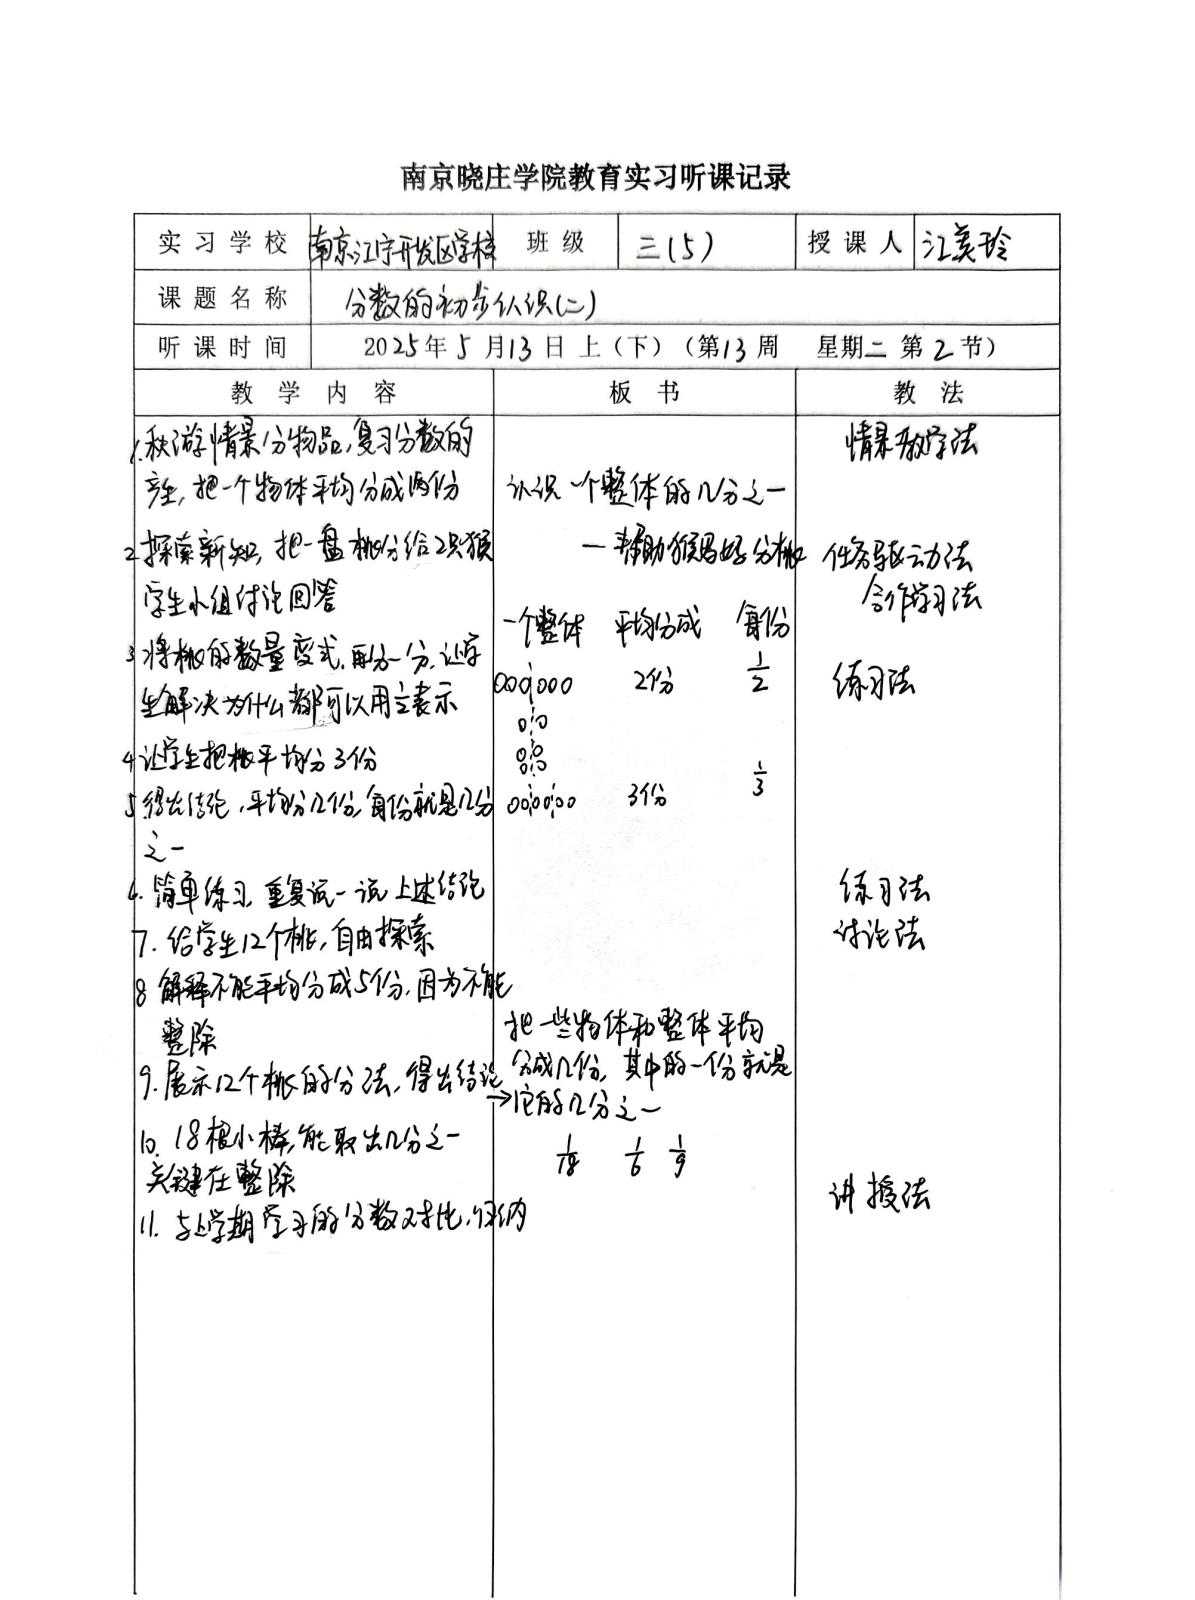 南京晓庄学院教育实习听课记录
实习学校 南京江宁开发区学校 班级 三(5) 授课人 江美玲
课题名称 分数的初步认识(二)
听课时间 2025年5月13日上(下)(第13周 星期二 第2节)
教学内容 板书 教法
1.秋游情景分物品,复习分数的
产生,把一个物体平均分成两份
2.探索新知,把一盘桃分给2只猴
学生小组讨论回答
3.将桃的数量变式,再分一分,让学
生解决为什么都可以用1/2表示
4.让学生把桃平均分3份
5.得出结论,平均分几份,每份就是几分
之一
6.简单练习,重复说一说上述结论
7.给学生12个桃,自由探索
8 解释不能平均分成5份,因为不能
整除
9.展示12个桃的分法,得出结论→
10.18根小棒,能取出几分之一
关键在整除
11.与上学期学习的分数对比,归纳
认识一个整体的几分之一
—帮助猴妈妈分桃
一个整体 平均分成 每份
000¦000 2份 1/2
0¦0
00¦00
00¦00¦00 3份 1/3
把一些物体和整体平均
分成几份,其中的一份就是
它的几分之一
1/18 1/6 1/9
情景教学法
任务驱动法
合作学习法
练习法
练习法
讨论法
讲授法